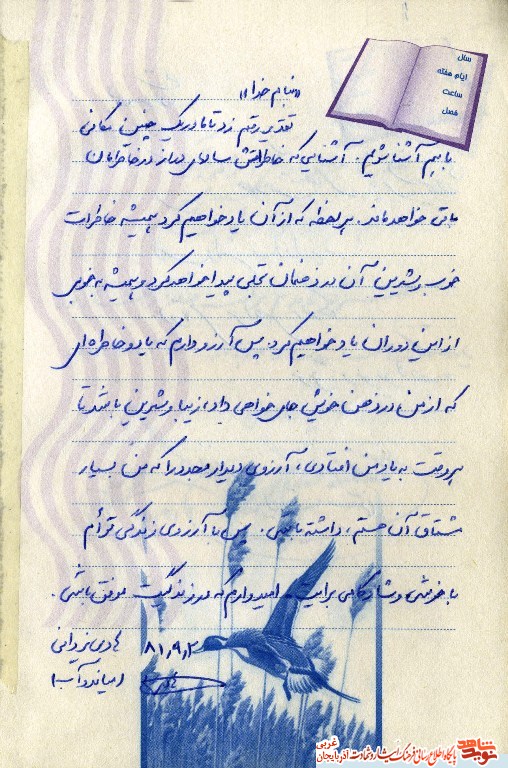 سال
ایام هفته
ساعت
فصل
«بنام خدا»
تقدیر رقم زد تا ما در یک چنین مکانی
با هم آشنا شویم. آشنایی که خاطراتش سالهای دراز در خاطرمان
باقی خواهد ماند. هر لحظه که از آن یاد خواهیم کرد همیشه خاطرات
خوب و شیرین آن در ذهنمان تجلی پیدا خواهد کرد و همیشه به خوبی
از این دوران یاد خواهیم کرد. پس آرزو دارم که یاد و خاطره‌ای
که از من در ذهن خویش جای خواهی داد، زیبا و شیرین باشد تا
هر وقت به یاد من افتادی، آرزوی دیدار مجدد را که من بسیار
مشتاق آن هستم، داشته باشی. پس با آرزوی زندگی توأم
با خوشی و شادکامی برایت، امیدوارم که در زندگیت موفق باشی.
۸۱,۹,۲ هادی یزدانی
(میاندوآب)
نوید شاهد پایگاه اطلاع رسانی فرهنگ ایثار و شهادت آذربایجان غربی